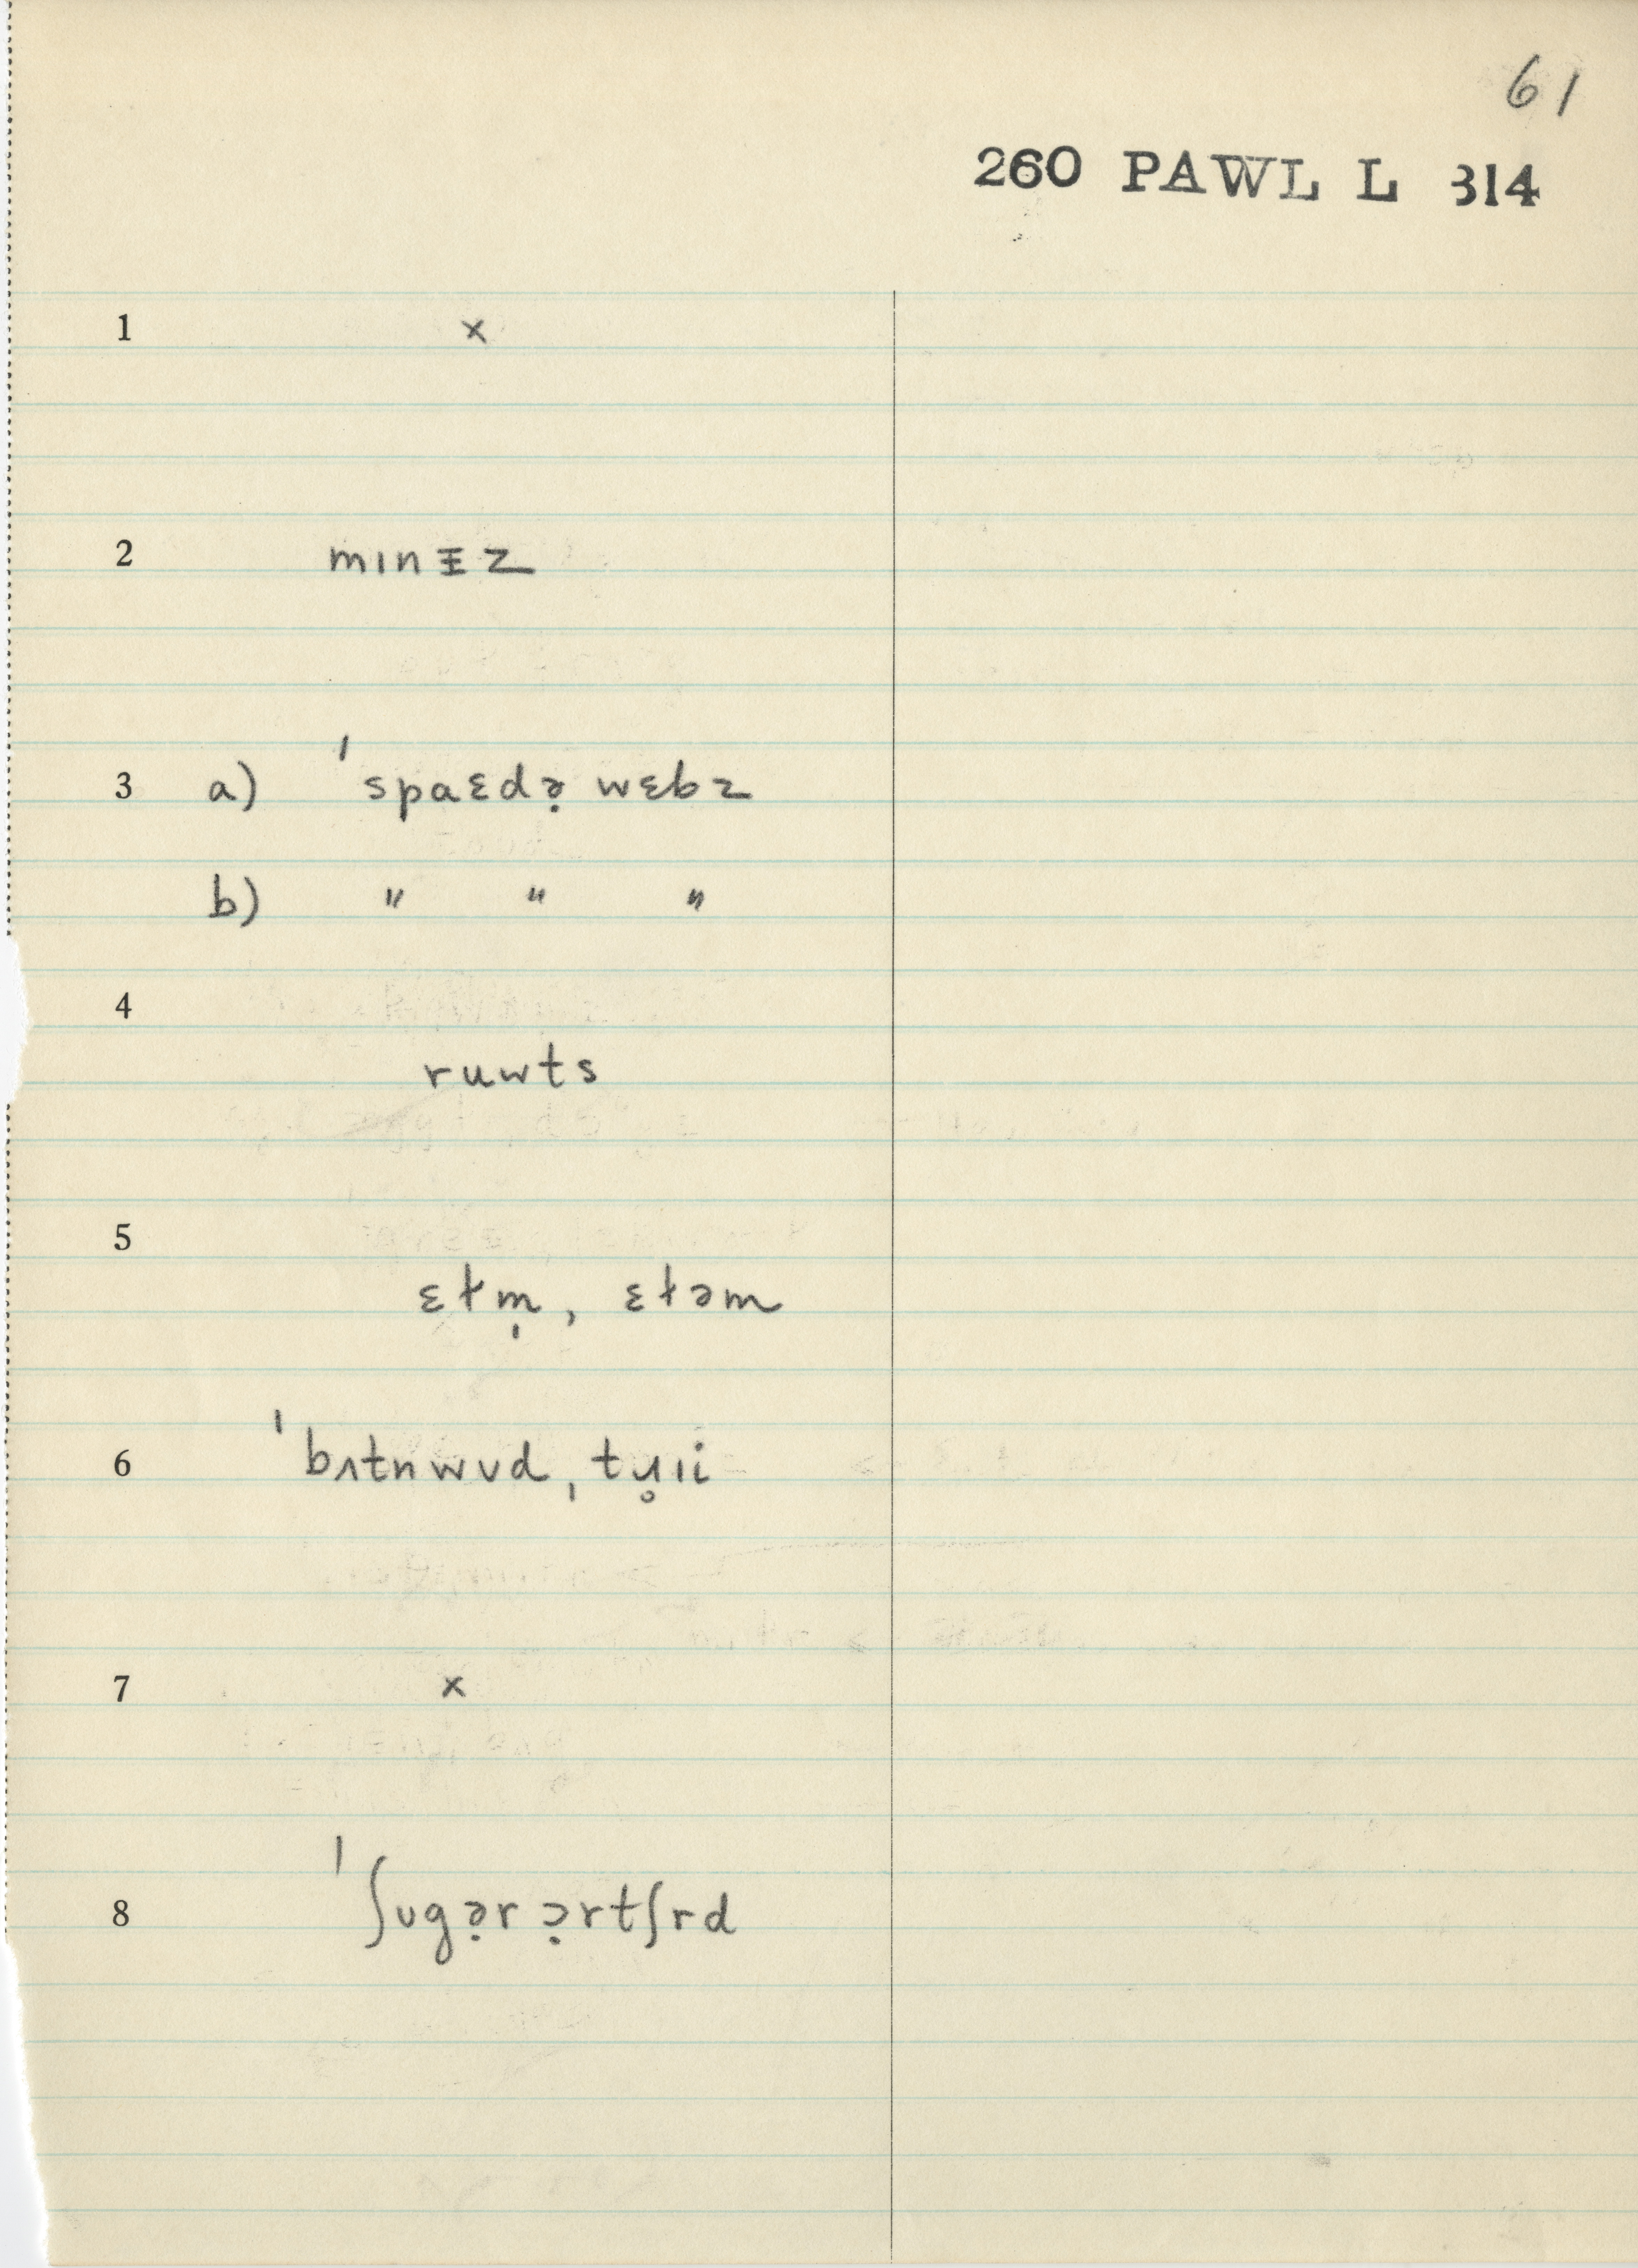 61
260 PAWL L 314
1 x
2 mɪnᵻz
3 a) ˈspaɛdə̣ wɛbz
b) " " "
4
ruwts
5
ɛɫm̩, ɛɫəm
6 ˈbʌtnwʊdˌtɹ̥ɪi
7 x
8 ˈʃʊgə̣r ɔ̣rtʃrd